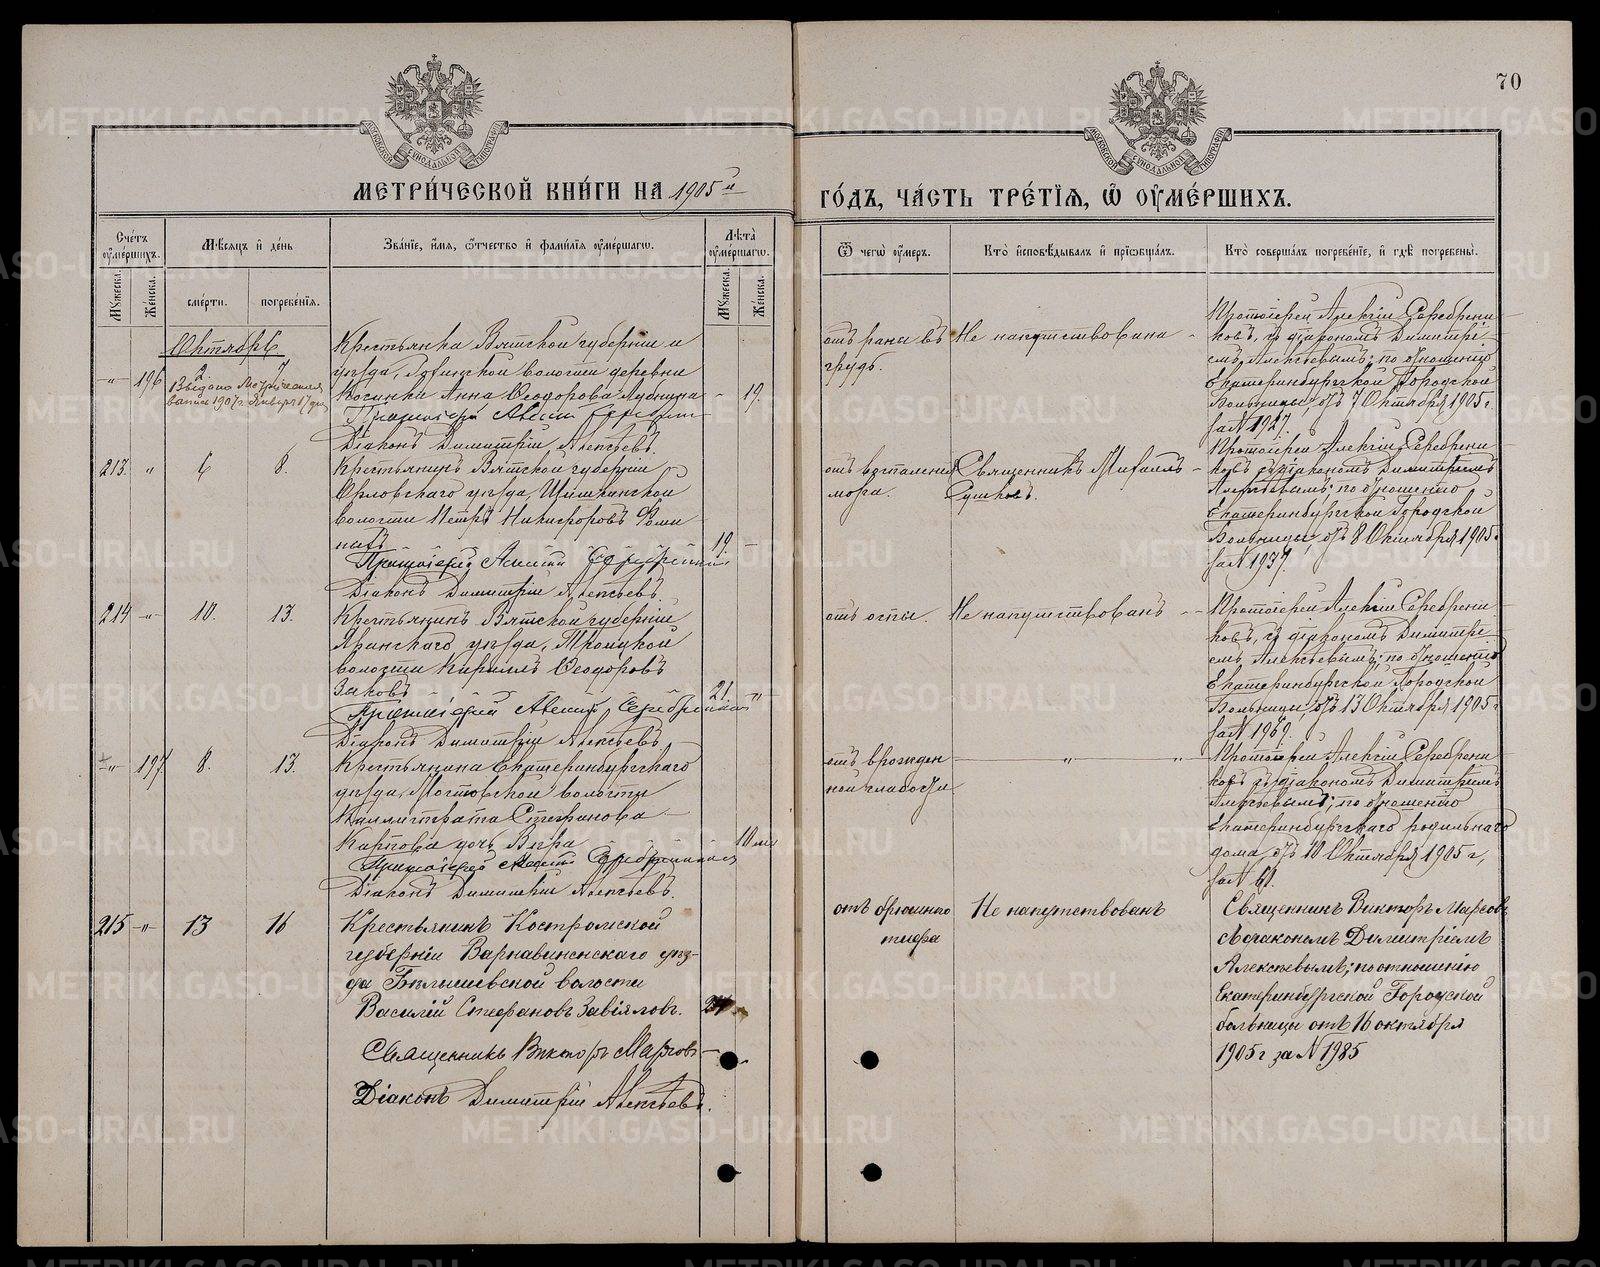 70
МОСКОВСКОЙ СѴНОДАЛЬНОЙ ТИПОГРАФІИ
МОСКОВСКОЙ СѴНОДАЛЬНОЙ ТИПОГРАФІИ
МЕТРИ́ЧЕСКОЙ КНИ́ГИ НА 1905й
ГО́ДЪ, ЧА́СТЬ ТРЕ́ТІЯ, Ѿ ОУМЕ́РШИХЪ.
Сче́тъ оумершихъ.
Мужеска.
Же́нска.
Мѣ́сяцъ и́ де́нь
сме́рти.
погребе́нїя.
Зва́нїе, и́мя, ѻ҆́тчество и́ фами́лїя оуме́ршагѡ.
Лѣта̀ оуме́ршагѡ.
Мужеска.
Же́нска.
Ѿ чегѡ̀ оу́меръ.
Кто̀ и҆сповѣ́дывалъ и́ прїѡбща́лъ.
Кто̀ соверша́лъ погребе́нїе, и́ гдѣ̀ погребены̀.
Октябрь
-"- 196 2 7
Выдана Метрическая
выпись 1907 г. Января 17 дня
Крестьянка Вятской губерніи и
уѣзда, волости деревни
Анна Ѳеодорова
- 19.
Протоіерей Алексій
Діаконъ Димитрій Алексѣевъ.
отъ раны въ
грудь.
Не напутствована -
Протоіерей Алексій Серебрени-
ковъ, съ діакономъ Димитрі-
емъ Алексѣевымъ; по отношенію
Екатеринбургской Городской
Больницы, отъ 7 Октября 1905 г.
за № 1927.
213. " 6 8.
Крестьянинъ Вятской губерніи
Орловскаго уѣзда Шишкинской
волости Петръ Никифоровъ Ѳоми
ныхъ
19. -
Протоіерей Алексій Серебрениковъ
Діаконъ Димитрій Алексѣевъ.
отъ воспаленія
мозга.
Священникъ Михаилъ -
Сушковъ.
Протоіерей Алексій Серебрени-
ковъ съ діакономъ Димитріемъ
Алексѣевымъ; по отношенію
Екатеринбургской Городской
Больницы, отъ 8 Октября 1905 г.
за № 1937.
214 -"- 10. 13.
Крестьянинъ Вятской губерніи
Яранскаго уѣзда, Троицкой
волости Кириллъ Ѳеодоровъ
Заковъ
21. "
Протоіерей Алексій Серебрениковъ
Діаконъ Димитрій Алексѣевъ.
отъ оспы.
Не напутствованъ -
Протоіерей Алексій Серебрени-
ковъ, съ діакономъ Димитрі-
емъ Алексѣевымъ; по отношенію
Екатеринбургской Городской
Больницы, отъ 13 Октября 1905 г.
за № 1969.
-"- 197 8. 13.
Крестьянина Екатеринбургскаго
уѣзда, Мостовской волости
Каллистрата Стефанова
Карпова дочь Вѣра
10 м.
Протоіерей Алексій Серебрениковъ
Діаконъ Димитрій Алексѣевъ.
отъ врожден
ной слабости
" "
Протоіерей Алексій Серебрени-
ковъ съ діакономъ Димитріемъ
Алексѣевымъ; по отношенію
Екатеринбургскаго родильнаго
дома отъ 10 Октября 1905 г,
за № 61.
215 -"- 13 16
Крестьянинъ Костромской
губерніи Варнавинскаго уѣз-
да Бѣлышевской волости
Василій Стефановъ Завіяловъ.
Священникъ Викторъ Марсовъ
Діаконъ Димитрій Алексѣевъ.
отъ брюшного
тифа
Не напутствованъ
Священникъ Викторъ Марсовъ
съ діакономъ Димитріемъ
Алексѣевымъ; по отношенію
Екатеринбургской Городской
больницы отъ 16 октября
1905 г за № 1985
METRIKI.GASO-URAL.RU